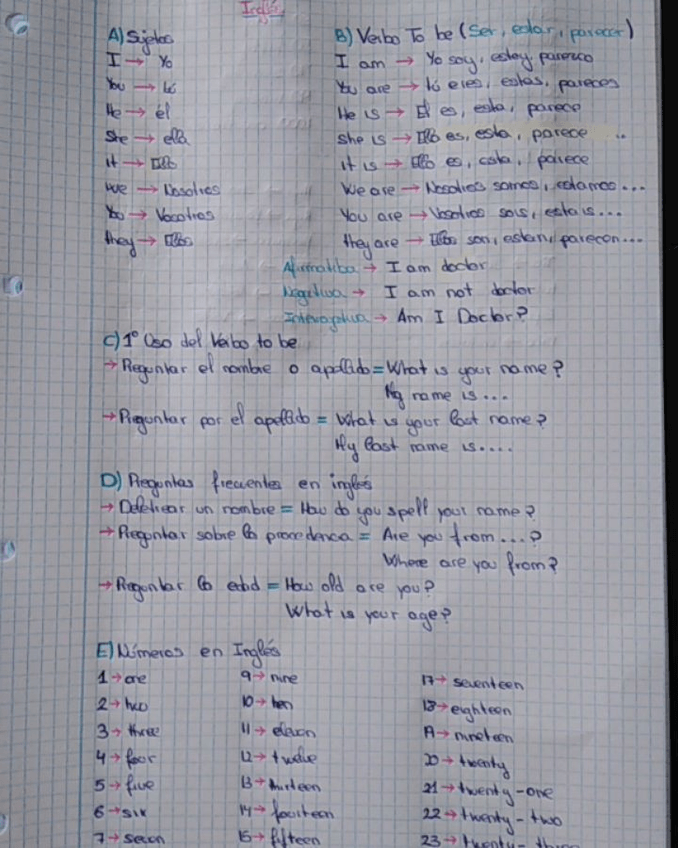 Inglés
A) Sujetos
I → Yo
You → tú
He → él
She → ella
it → Ello
we → Nosotros
Yo → Vosotros
they → Ellos
B) Verbo To be (Ser, estar, parecer)
I am → Yo soy, estoy, parezco
You are → tú eres, estas, pareces
He is → El es, esta, parece
She is → Ella es, esta, parece ..
it is → Ello es, esta, parece
We are → Nosotros somos, estamos...
You are → Vosotros sois, estais...
they are → Ellos son, estan, parecen...
Afirmatiba → I am doctor
Negativa → I am not doctor
Interrogativa → Am I Doctor?
C) 1º Uso del Verbo to be
→ Preguntar el nombre o apellido = What is your name?
My name is...
→ Preguntar por el apellido = What is your last name?
My last name is....
D) Preguntas frecuentes en inglés
→ Deletrear un nombre = How do you spell your name?
→ Preguntar sobre la procedencia = Are you from...?
Where are you from?
→ Preguntar la edad = How old are you?
What is your age?
E) Números en Inglés
1 → one
2 → two
3 → three
4 → four
5 → five
6 → six
7 → seven
9 → nine
10 → ten
11 → eleven
12 → twelve
13 → thirteen
14 → fourteen
15 → fifteen
17 → seventeen
18 → eighteen
19 → nineteen
20 → twenty
21 → twenty-one
22 → twenty-two
23 → twenty-three